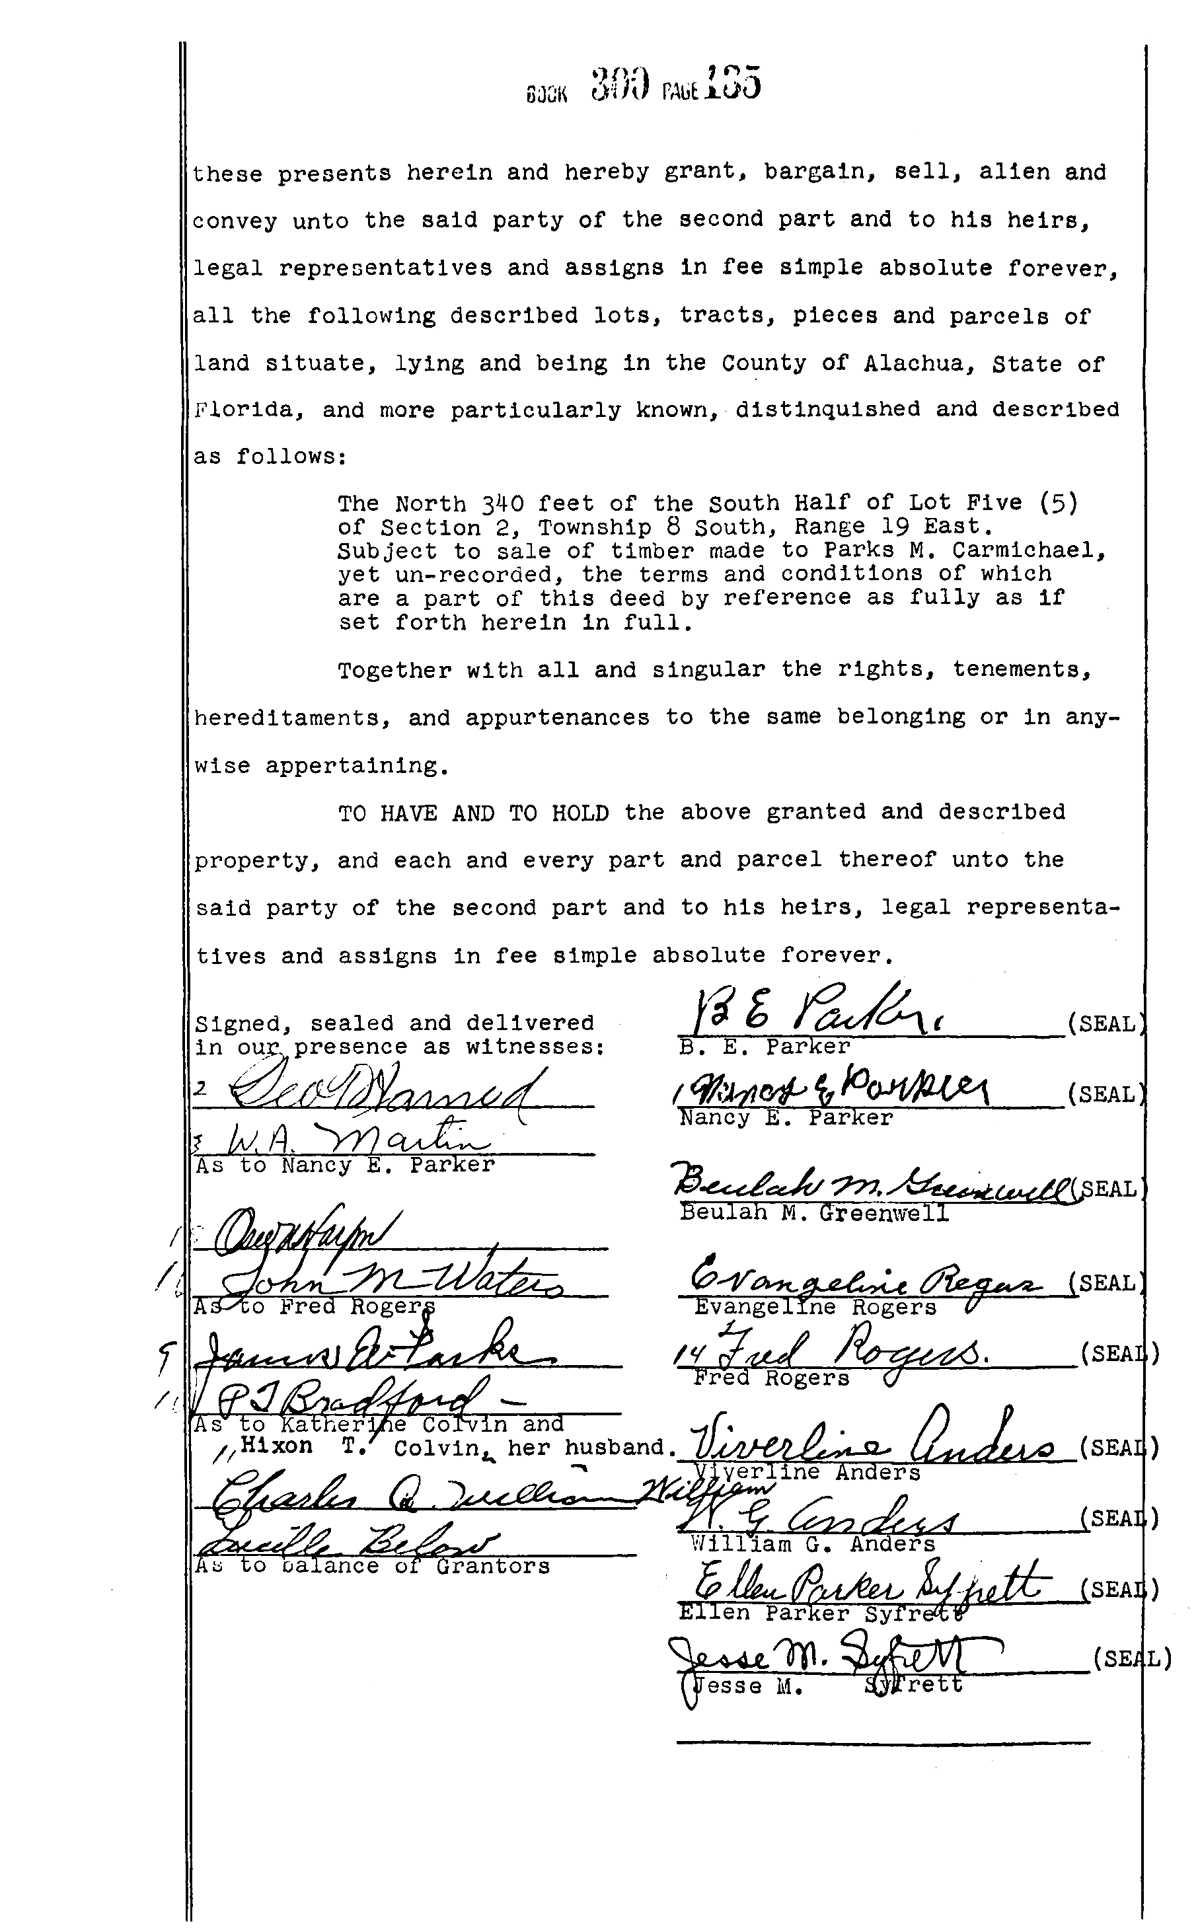 BOOK 300 PAGE 135
these presents herein and hereby grant, bargain, sell, alien and
convey unto the said party of the second part and to his heirs,
legal representatives and assigns in fee simple absolute forever,
all the following described lots, tracts, pieces and parcels of
land situate, lying and being in the County of Alachua, State of
Florida, and more particularly known, distinquished and described
as follows:
The North 340 feet of the South Half of Lot Five (5)
of Section 2, Township 8 South, Range 19 East.
Subject to sale of timber made to Parks M. Carmichael,
yet un-recorded, the terms and conditions of which
are a part of this deed by reference as fully as if
set forth herein in full.
Together with all and singular the rights, tenements,
hereditaments, and appurtenances to the same belonging or in any-
wise appertaining.
TO HAVE AND TO HOLD the above granted and described
property, and each and every part and parcel thereof unto the
said party of the second part and to his heirs, legal representa-
tives and assigns in fee simple absolute forever.
Signed, sealed and delivered
in our presence as witnesses:
2
3 W.A. Martin
As to Nancy E. Parker
John M Waters
As to Fred Rogers
9 James W Parks
P T Bradford
As to Katherine Colvin and
Hixon T. Colvin, her husband.
Charles Q. William
Lucille Below
As to balance of Grantors
B E Parker (SEAL)
B. E. Parker
1 Nancy E Parker (SEAL)
Nancy E. Parker
Beulah M. Greenwell (SEAL)
Beulah M. Greenwell
Evangeline Rogers (SEAL)
Evangeline Rogers
14 Fred Rogers. (SEAL)
Fred Rogers
Viverline Anders (SEAL)
Viverline Anders
William
W. G. Anders (SEAL)
William G. Anders
Ellen Parker Syfrett (SEAL)
Ellen Parker Syfrett
Jesse M. Syfrett (SEAL)
Jesse M. Syfrett